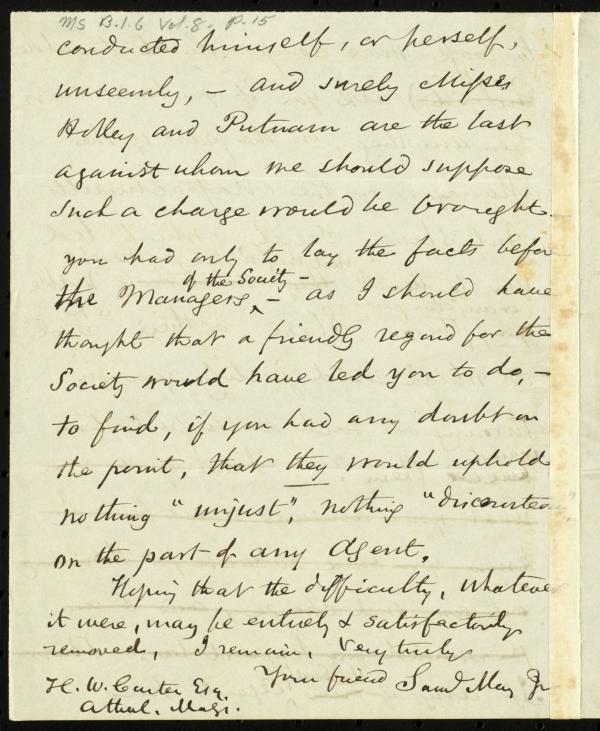 MS B.1.6 Vol.8. p.15
conducted himself, or herself,
unseemly, – and surely Misses
Holley and Putnam are the last
against whom we should suppose
such a charge would be brought.
You had only to lay the facts befor
of the Society –
the Managers, – as I should have
thought that a friendly regard for the
Society would have led you to do, –
to find, if you had any doubt on
the point, that they would uphold
nothing "unjust", nothing "discourteou
on the part of any Agent.
Hoping that the difficulty, whateve
it were, may be entirely & satisfactorily
removed, I remain, very truly
Your friend Saml. May Jr
H. W. Carter Esq.
Athol. Mass.